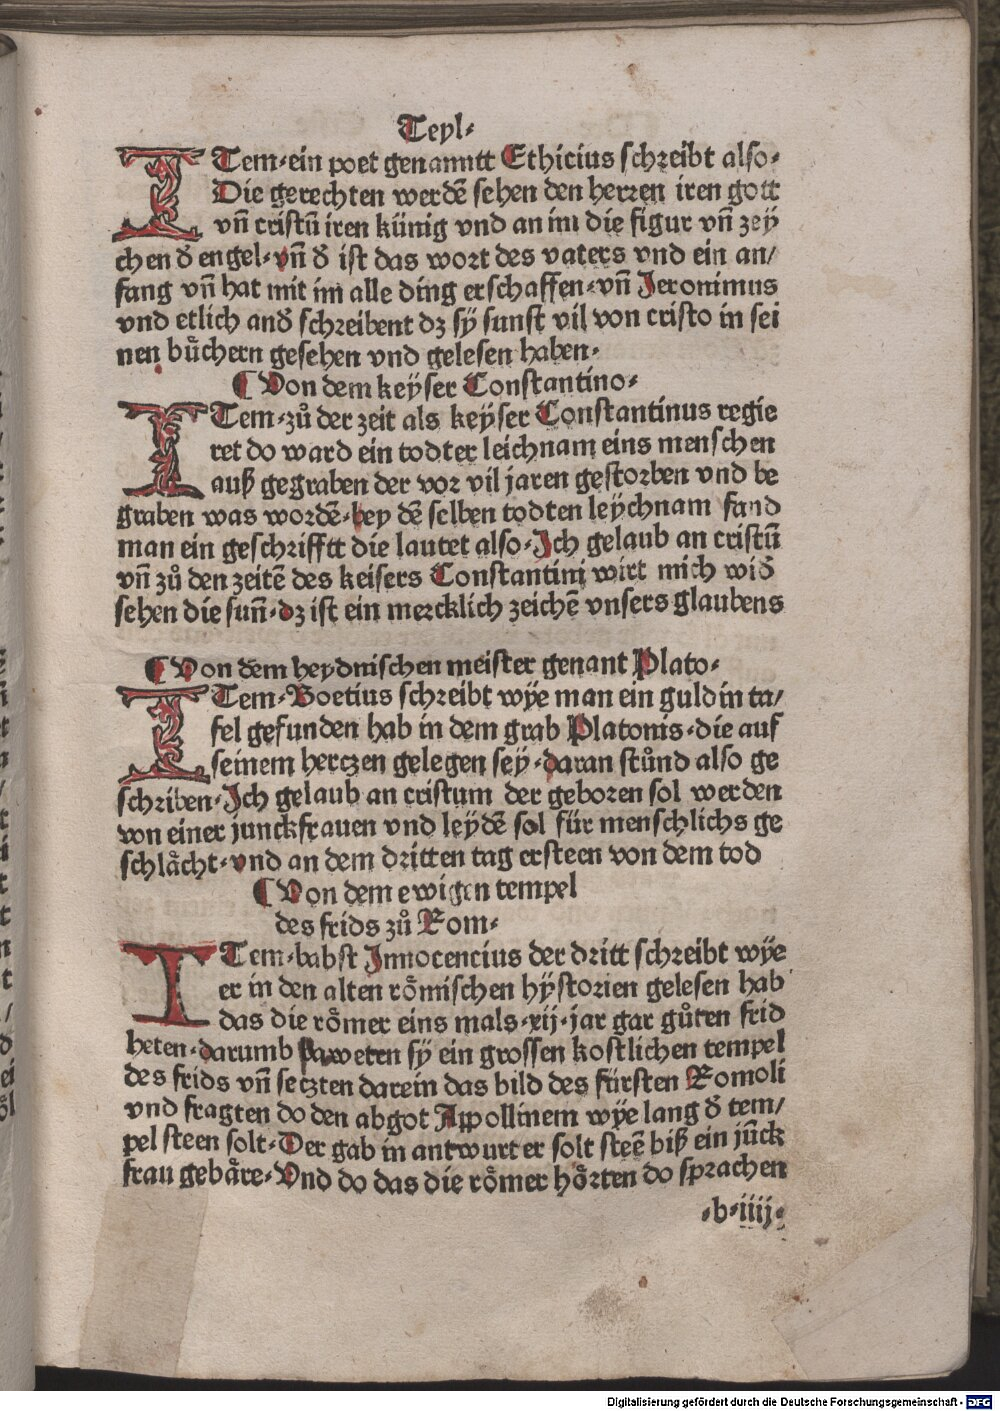 Teyl·
ITem·ein poet genanntt Ethicius schreibt also·
Die gerechten werdē sehen den herren iren gott
vn̄ cristū iren künig vnd an im die figur vn̄ zeÿ
chen đ engel·vn̄ đ ist das wort des vaters vnd ein an/
fang vn̄ hat mit im alle ding erschaffen·vn̄ Jeronimus
vnd etlich anđ schreibent dz sÿ sunst vil von cristo in sei
nen bůchern gesehen vnd gelesen haben·
¶ Von dem keÿser Constantino·
ITem·zů der zeit als keÿser Constantinus regie
ret do ward ein todter leichnam eins menschen
auß gegraben der vor vil jaren gestorben vnd be
graben was wordē·bey dē selben todten leÿchnam fand
man ein geschrifftt die lautet also·Ich gelaub an cristū
vn̄ zů den zeitē des keisers Constantini wirt mich wiđ
sehen die sun̄·dz ist ein mercklich zeichē vnsers glaubens
¶ Von dem heydnischen meister genant Plato·
ITem·Boetius schreibt wÿe man ein guldin ta/
fel gefunden hab in dem grab Platonis·die auf
seinem herczen gelegen sey·daran stůnd also ge
schriben·Ich gelaub an cristum der geboren sol werden
von einer junckfrauen vnd leÿdē sol für menschlichs ge
schlåcht·vnd an dem dritten tag ersteen von dem tod
¶ Von dem ewigen tempel
des frids zů Rom·
ITem·babst Innocencius der dritt schreibt wÿe
er in den alten rômischen hÿstorien gelesen hab
das die rômer eins mals·xij·jar gar gůten frid
heten·darumb paweten sÿ ein grossen kostlichen tempel
des frids vn̄ seczten darein das bild des fürsten Romoli
vnd fragten do den abgot Appollinem wÿe lang đ tem/
pel steen solt·Der gab in antwurt er solt steē biß ein jūck
frau gebåre·Vnd do das die rômer hôrten do sprachen
·b·iiij·
Digitalisierung gefördert durch die Deutsche Forschungsgemeinschaft - DFG